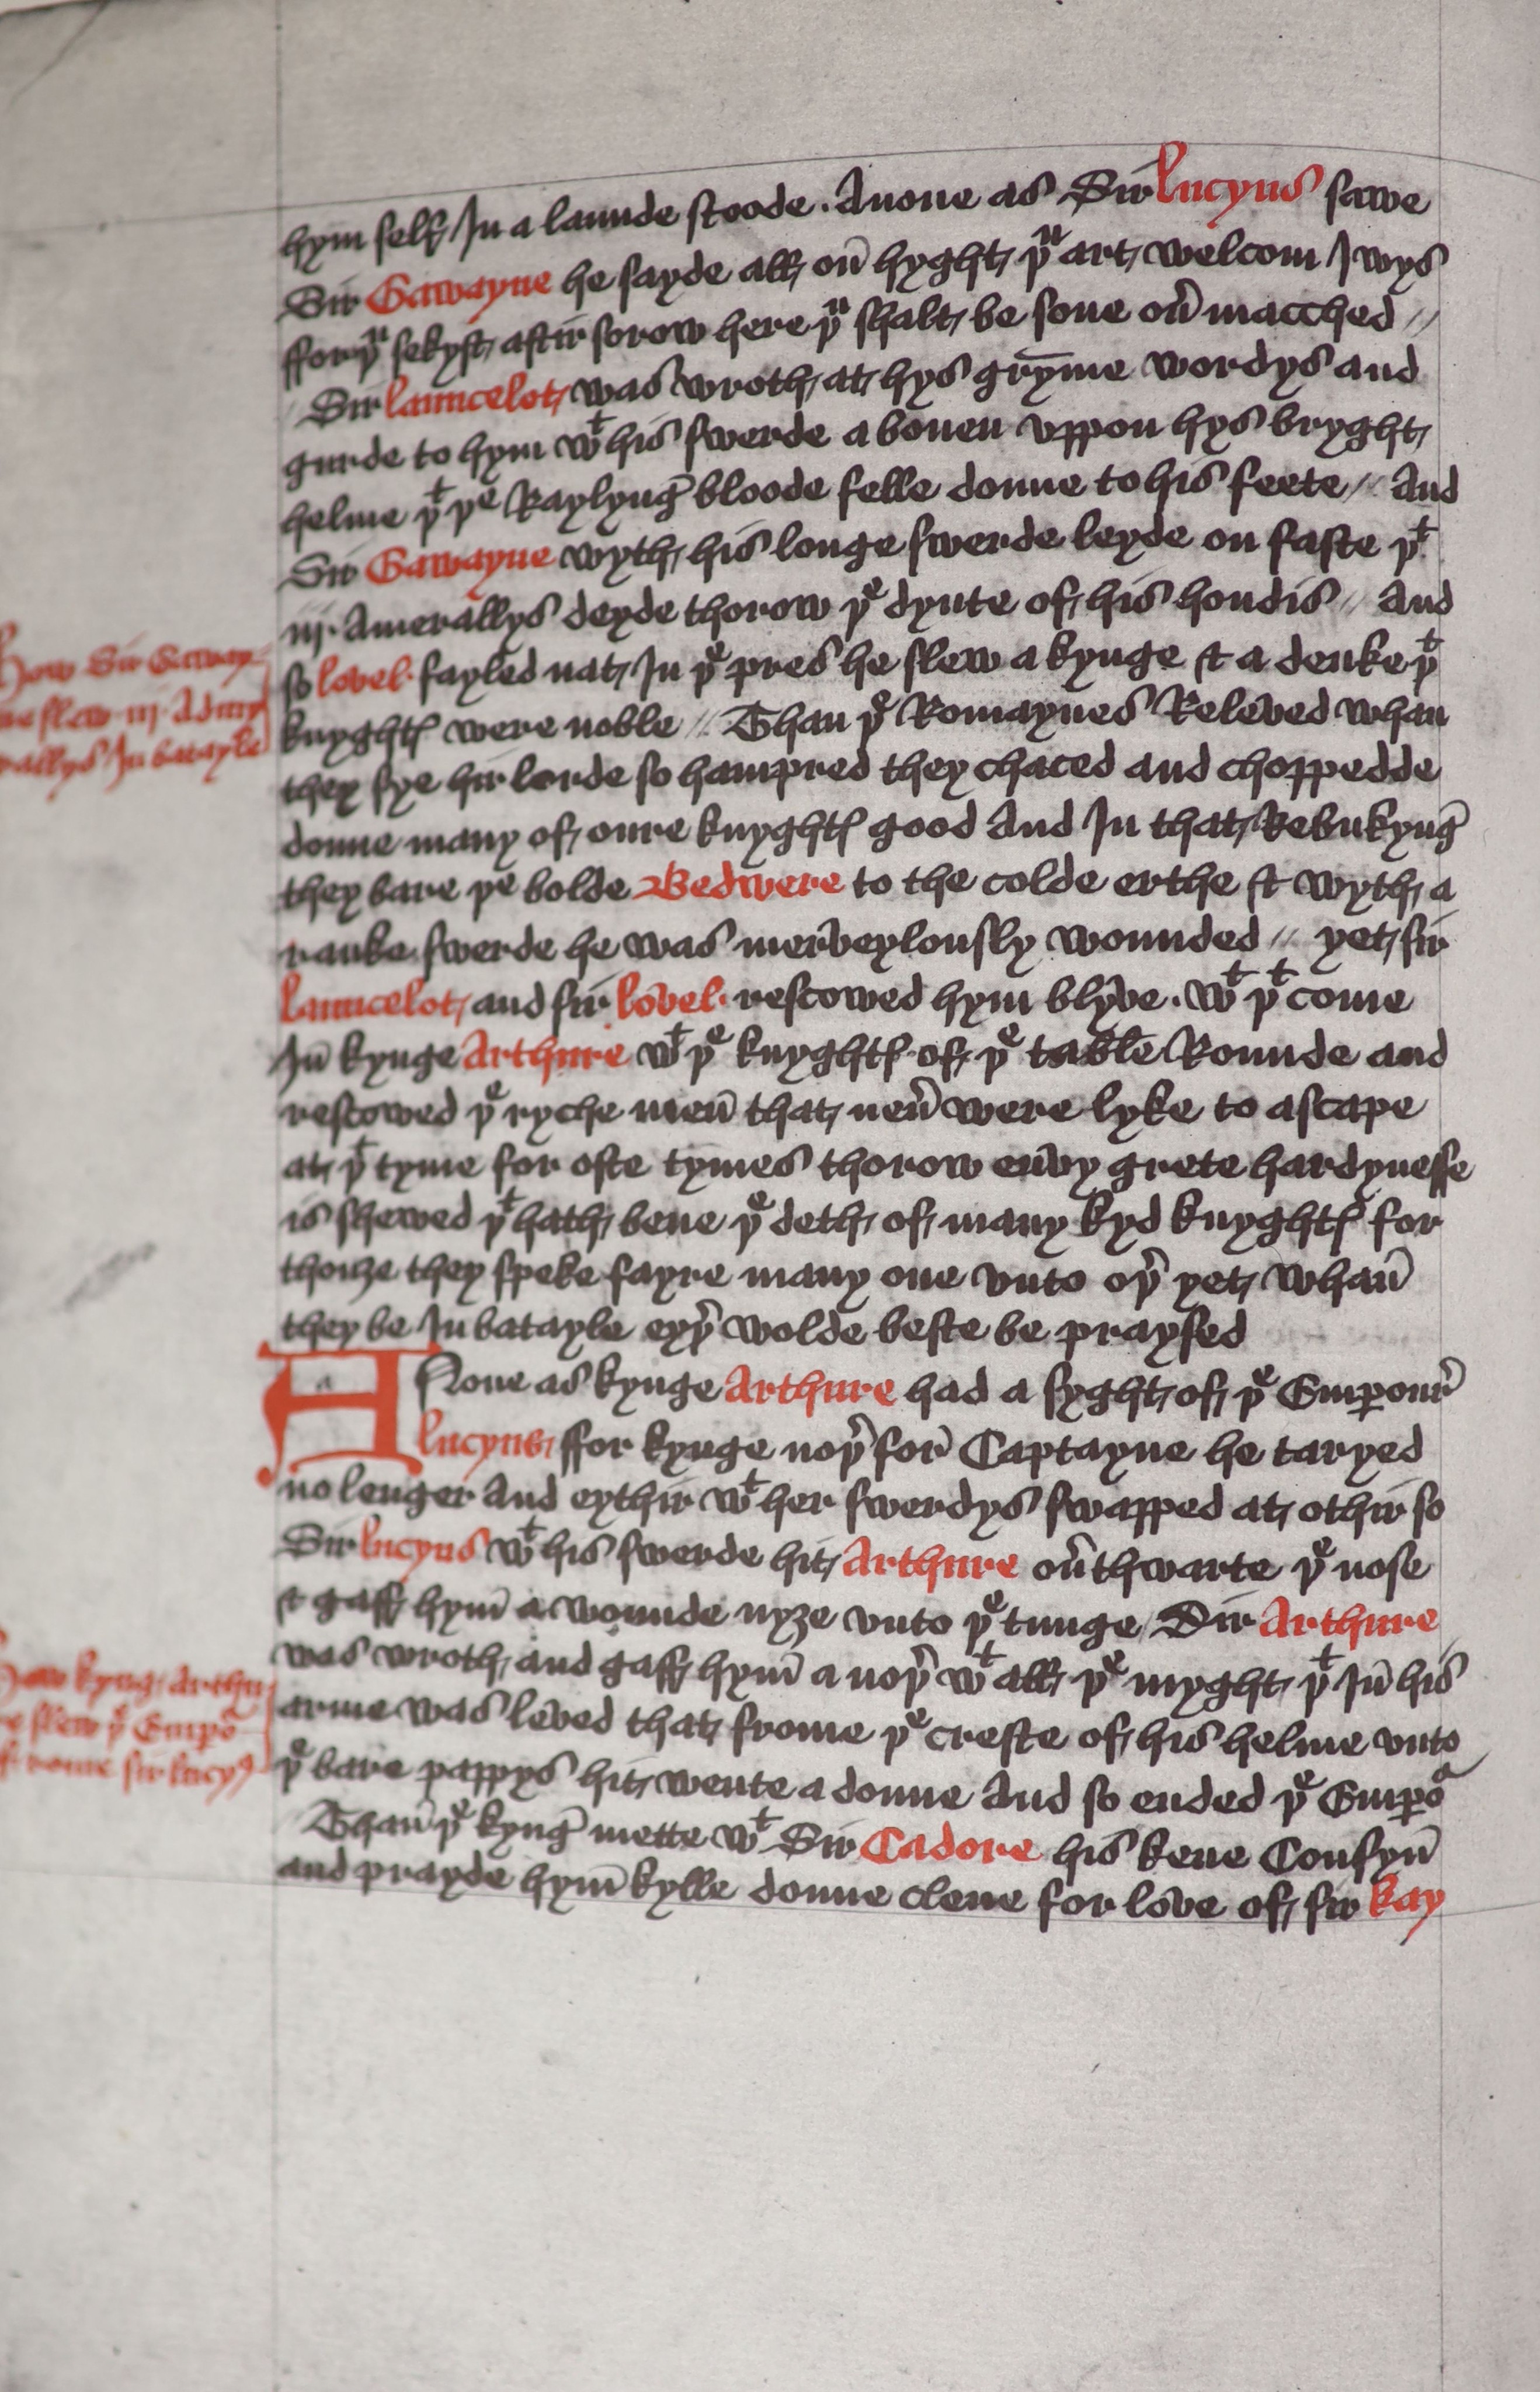 hym self In a launde stoode . Anone as Sir Lucyus sawe
Sir Gawayne he sayde all on hyght þᵘ art welcom Iwys
ffor þᵘ sekyst aftir sorow here þᵘ shalt be sone ou̾macched //
Sir Launcelot was wroth at hys gryme wordys and
gurde to hym wᵗ his swerde a boven vppon hys bryght
helme þᵗ þᵉ Raylyng bloode felle doune to his feete // And
Sir Gawayne wyth his longe swerde leyde on faste þᵗ
iij. Amerallys deyde thorow þᵉ dynte of his hondis // And
so Lovel. fayled nat In þᵉ pres he slew a kynge & a deuke þᵗ
How Sir Gaway-
ne slew iij Admy
rallys In batayle
knyghtꝭ were noble // Than þᵉ Romaynes Releved whan
they sye hir lorde so hampred they chaced and choppedde
doune many of oure knyghtꝭ good And In that Rebukyng
they bare þe bolde Bedwere to the colde erthe & wyth a
ranke swerde he was merveylously wounded // yet sir
Launcelot and sir Lovel. rescowed hym blyve . wᵗ þᵗ come
In kynge Arthure wᵗ þᵉ knyghtꝭ of þᵉ table Rounde and
rescowed þᵉ ryche men that neu̾ were lyke to ascape
at þᵗ tyme for ofte tymes thorow envy grete hardynesse
is shewed þᵗ hath bene þᵉ deth of many kyd knyghtꝭ for
thouȝe they speke fayre many one vnto oþ̾ yet whan
they be In batayle eyþ̾ wolde beste be praysed
ANone as kynge Arthure had a syght of þᵉ Emꝑour
Lucyus ffor kynge noþ̾ for Captayne he taryed
no lenger And eythir wᵗ her swerdys swapped at othir so
Sir Lucyus wᵗ his swerde hit Arthure ou̾thwarte þᵉ nose
& gaff hym a wounde nyȝe vnto þᵉ tunge Sir Arthure
was wroth and gaff hym a noþ̾ wᵗ all þᵉ myght þᵗ In his
How kyng Arthu
re slew þᵉ Empoʳ
of rome sir lucyꝰ
arme was leved that frome þᵉ creste of his helme vnto
þᵉ bare pappys hit wente a doune And so ended þᵉ Emꝑoʳ
Than þᵉ kyng mette wᵗ Sir Cadore his kene Cousyn
and prayde hym kylle doune clene for love of sir kay